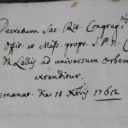 Decretum Sac. Rit. Congreg.
Offic. et Miss. propr. S. P. N. C
de Lellis ad universum Orbem
extenditur.
emanat. die 18 Xbris 1762